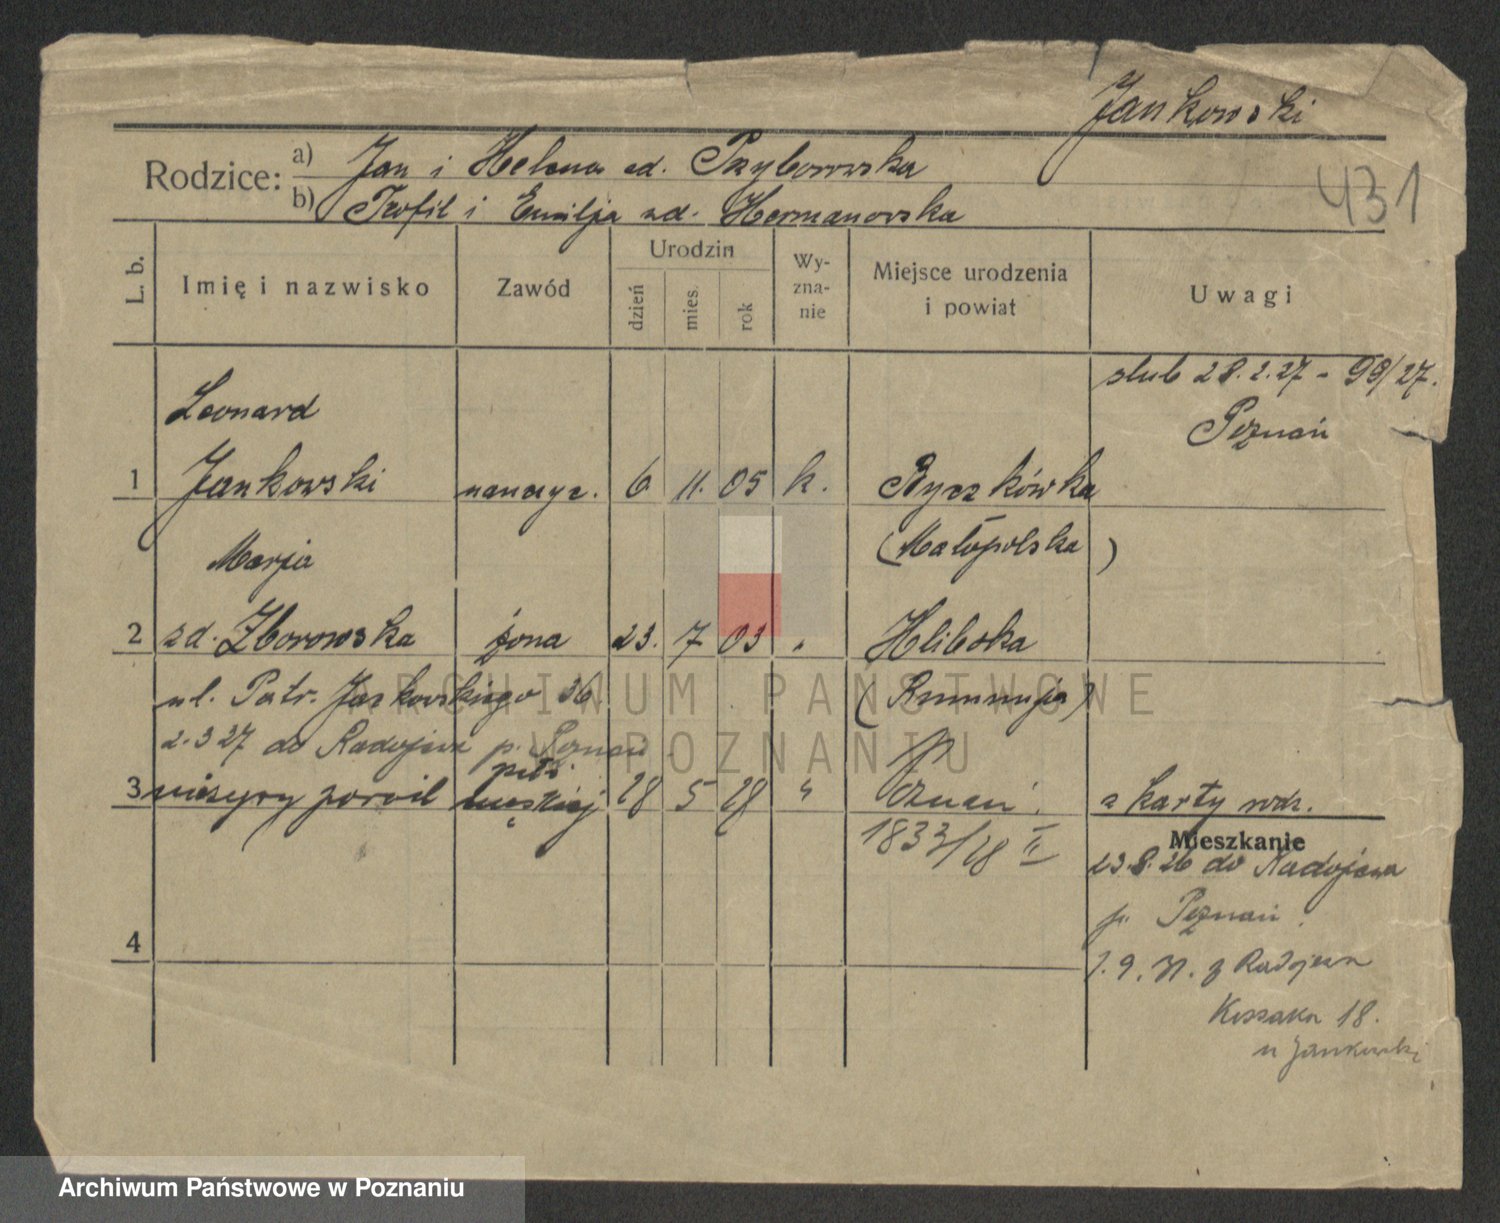 Jankowski
431
Rodzice: a) Jan i Helena zd. Przyborowska
b) Teofil i Emilja zd. Hermanowska
L. b.
Imię i nazwisko
Zawód
Urodzin
dzień
mies.
rok
Wy-
zna-
nie
Miejsce urodzenia
i powiat
Uwagi
ślub 28.2.27 - 99/27.
Poznań
Leonard
1 Jankowski nauczyc. 6 11. 05 k. Ryczkówka
(Małopolska)
Marja
2 zd. Zborowska żona 23. 7 03 " Hliboka
ul. Patr. Jackowskiego 36 (Rumunja)
2.3 27 do Radojewa p. Poznań
płci
3 nieżywy porod męskiej 28 5 28 " Poznań.
z karty rodz.
1833/28 II
Mieszkanie
23.8.26 do Radojewa
p. Poznań
4
1.9.31. z Radojewa
Kossaka 18.
u Jankowski
ARCHIWUM PAŃSTWOWE
W POZNANIU
Archiwum Państwowe w Poznaniu